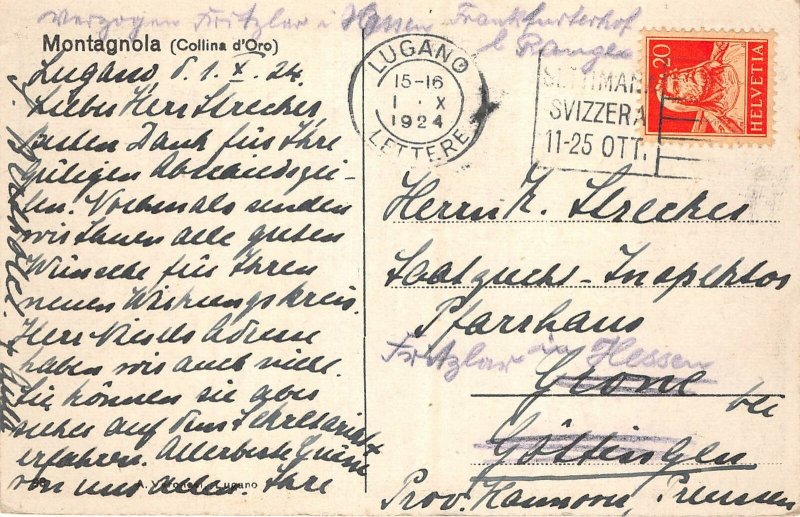 Verzogen Fritzlar i Hessen Frankfurterhof
b Rangen
Montagnola (Collina d'Oro)
LUGANO
15-16
1 · X
1924
LETTERE
SETTIMANA
SVIZZERA
11-25 OTT.
20
HELVETIA
Lugano d. 1. X. 24.
Lieber Herr Strecker,
besten Dank für Ihre
gütigen Abschiedszei-
len. Nochmals senden
wir Ihnen alle guten
Wünsche für Ihren
neuen Wirkungskreis.
Herr Adresse
haben wir auch nicht.
Sie können sie aber
sicher auf dem Sekretariat
erfahren. Allerbeste Grüsse
von uns allen. Ihre
Herrn K. Strecker
Saatzucht-Inspektor
Pfarrhaus
Fritzlar in Hessen
Grone bei
Göttingen
Prov. Hannover, Preussen
Lugano